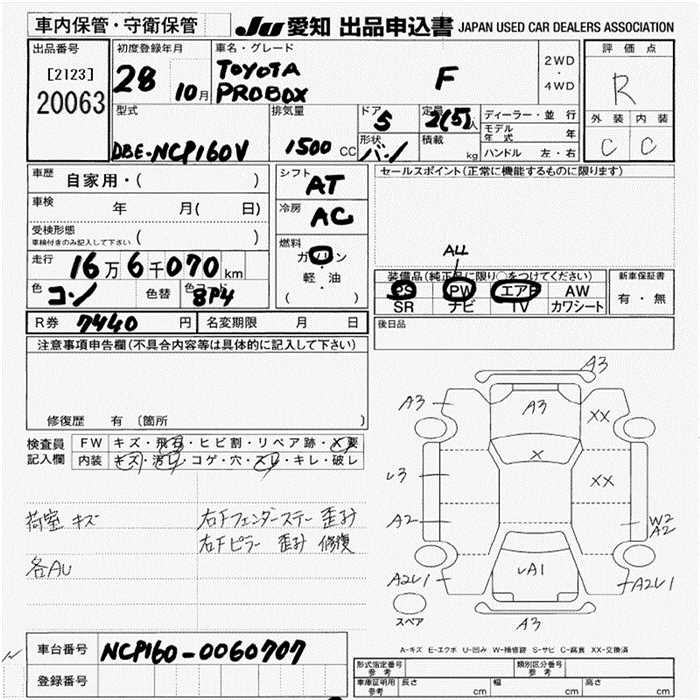 車内保管・守衛保管
JU 愛知 出品申込書 JAPAN USED CAR DEALERS ASSOCIATION
出品番号
[2123]
20063
初度登録年月
28
10月
車名・グレード
TOYOTA
PROBOX
F
2WD
・
4WD
評価点
R
外装 内装
C C
型式
DBE-NCP160V
排気量
1500 CC
ドア
5
形状
バン
定員
2(5)人
積載
kg
ディーラー・並行
モデル年式 年
ハンドル 左・右
車歴
自家用・( )
車検
年 月( 日)
受検形態
車検付きのみ記入して下さい ( )
走行
16万6千070km
色
コン
色替
色コード
8P4
シフト
AT
冷房
AC
燃料
ガソリン
・
軽・油
( )
セールスポイント(正常に機能するものに限ります)
ALL
装備品(純正品に限り○をつけてください)
PS PW エアB AW
SR ナビ TV カワシート
新車保証書
有・無
R券 7440円
名変期限 月 日
後日品
注意事項申告欄(不具合内容等は具体的に記入して下さい)
修復歴 有 〔箇所 〕
検査員
記入欄
FW キズ・飛石・ヒビ割・リペア跡・X要
内装 キズ・汚レ・コゲ・穴・スレ・キレ・破レ
荷室 キズ
各AU
右Fフェンダーステー 歪み
右Fピラー 歪み 修復
A3
A3 A3 XX
X
L3 XX
A2 W2
A2
A2L1 LA1 A2L1
A3
スペア
A-キズ E-エクボ U-凹み W-補修跡 S-サビ C-腐食 XX-交換済
車台番号
NCP160-0060707
登録番号
型式指定番号
参考
類別区分番号
参考
車庫証明用
参考
長さ cm 幅 cm 高さ cm